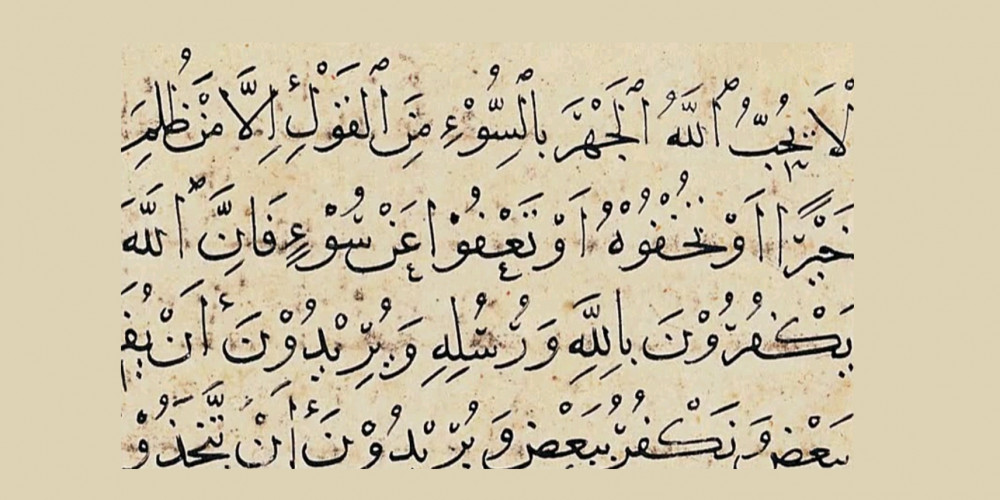 لَا يُحِبُّ اللَّهُ الْجَهْرَ بِالسُّوْءِ مِنَ الْقَوْلِ اِلَّا مَنْ ظُلِمَ
خَيْرًا اَوْ تُخْفُوْهُ اَوْ تَعْفُوْا عَنْ سُوْءٍ فَاِنَّ اللَّهَ
يَكْفُرُوْنَ بِاللَّهِ وَرُسُلِهِ وَيُرِيْدُوْنَ اَنْ
بِبَعْضٍ وَنَكْفُرُ بِبَعْضٍ وَيُرِيْدُوْنَ اَنْ يَتَّخِذُوْ